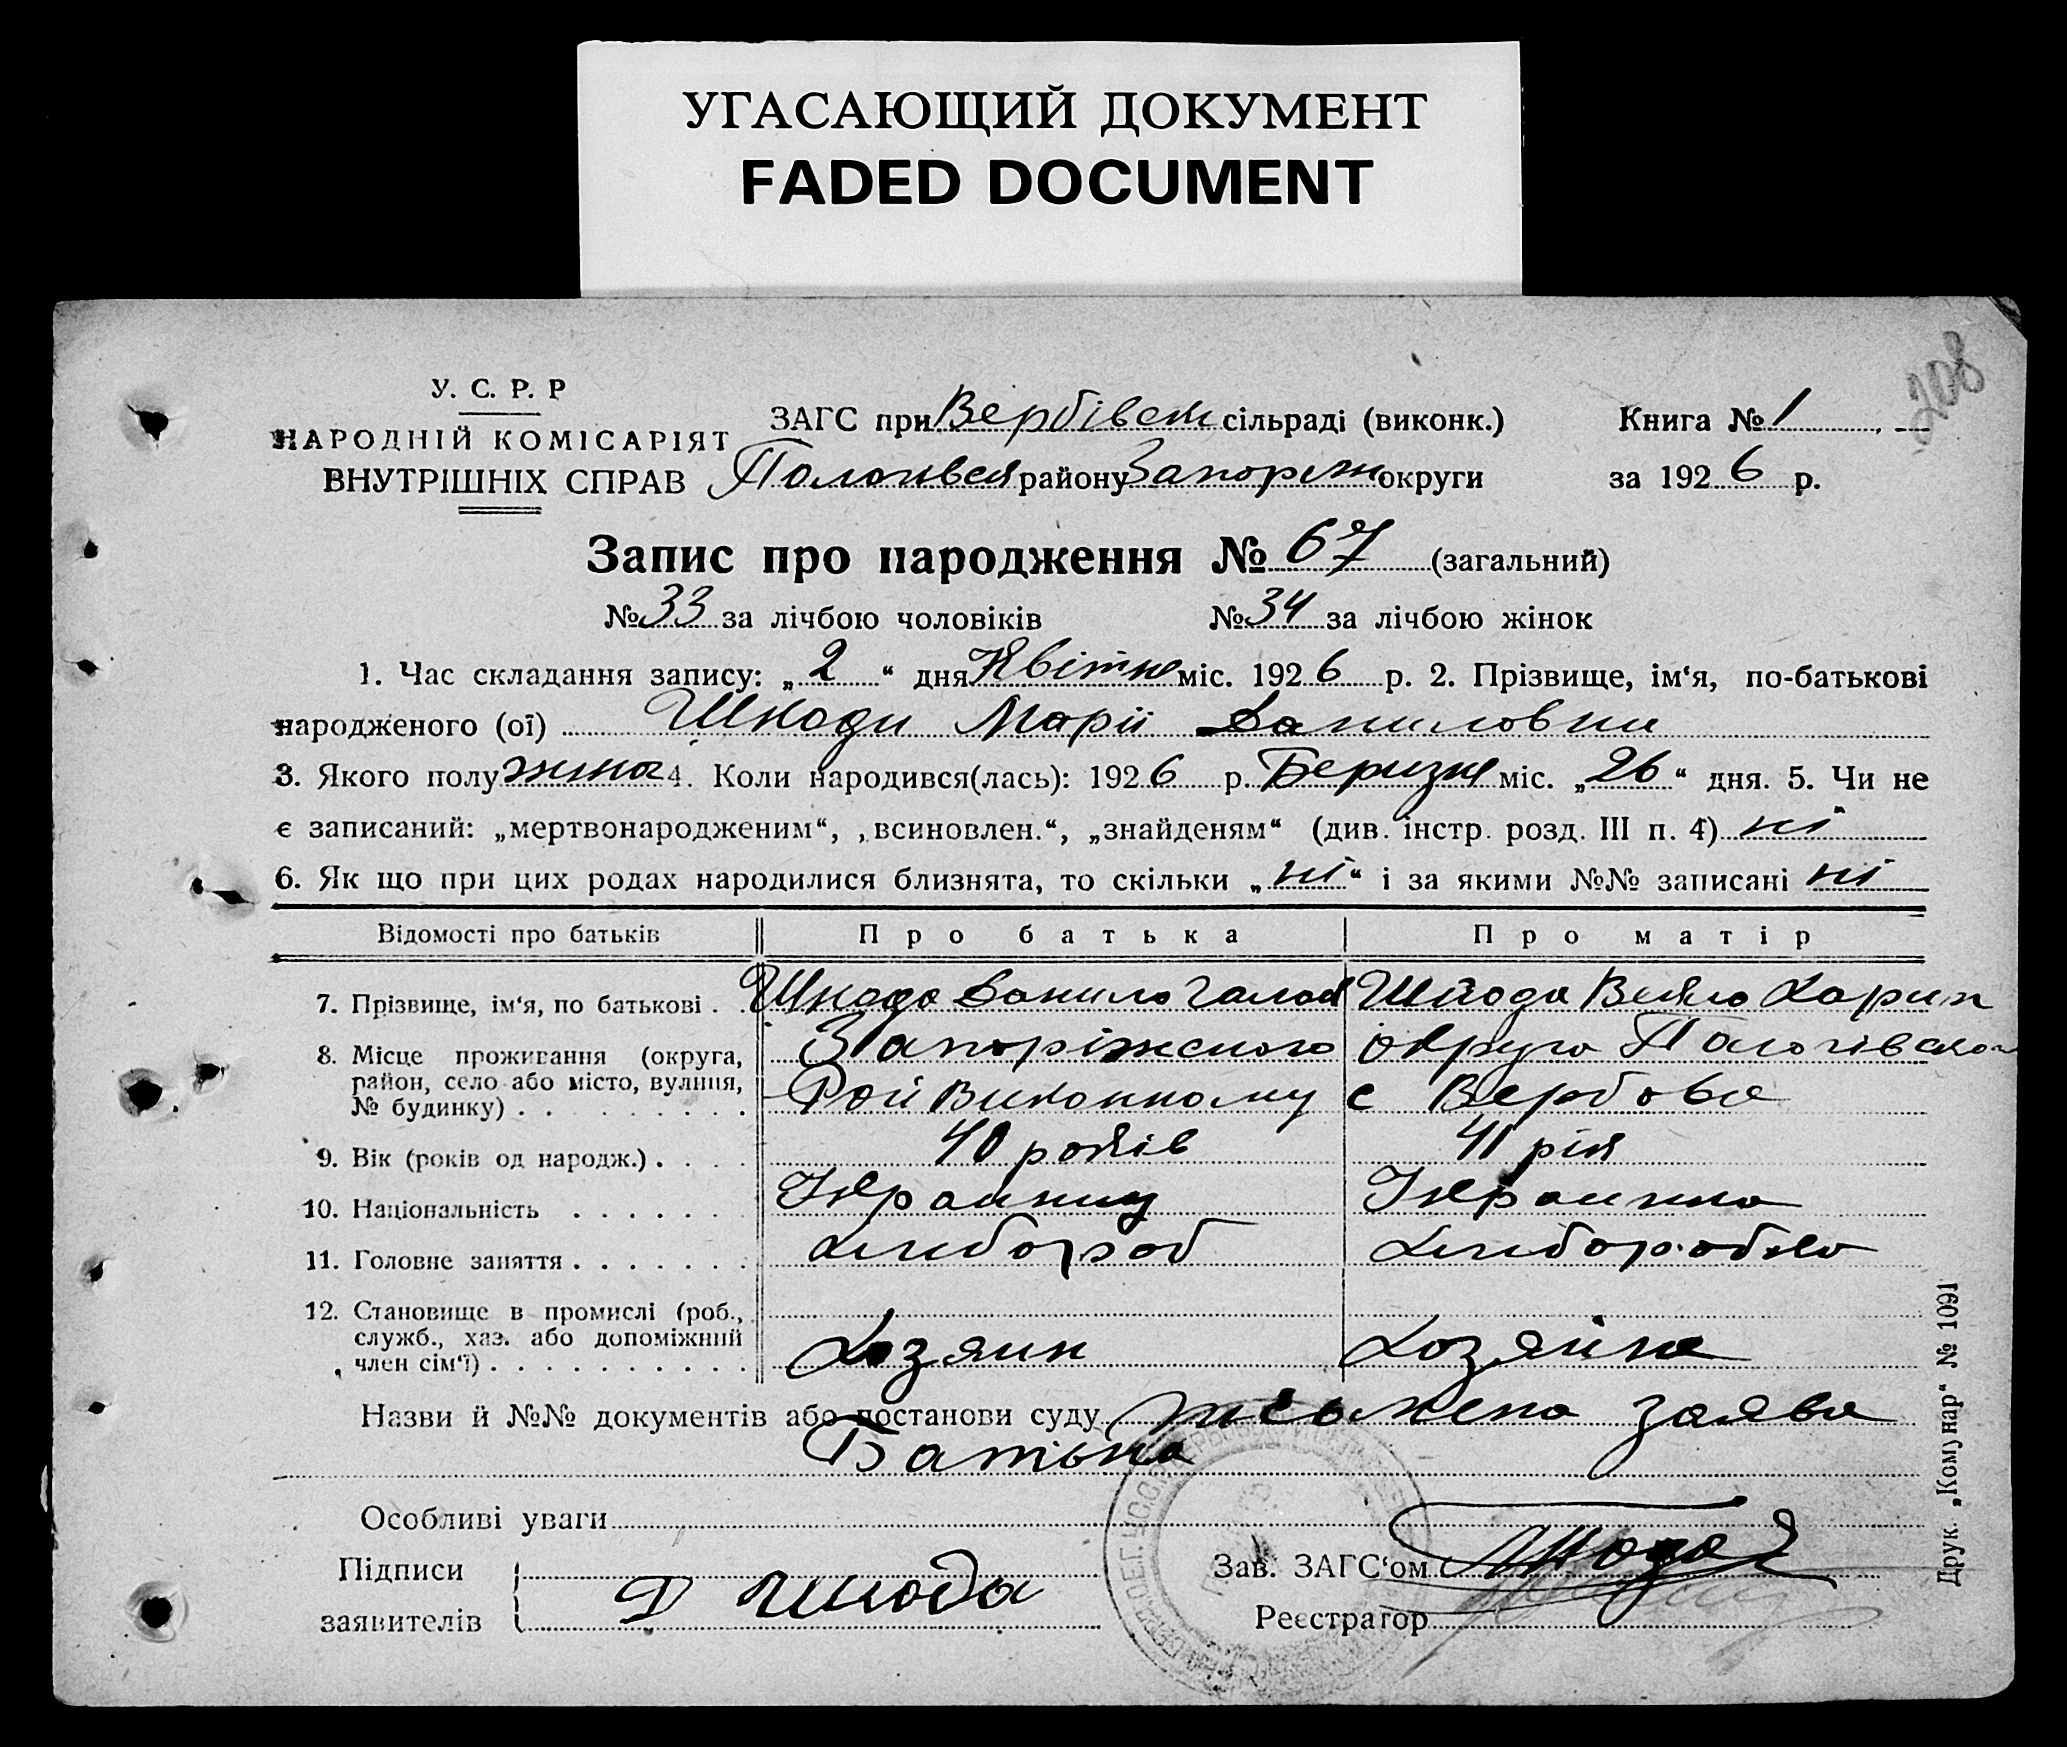 УГАСАЮЩИЙ ДОКУМЕНТ
FADED DOCUMENT
208
У. С. Р. Р
НАРОДНІЙ КОМІСАРІЯТ
ВНУТРІШНІХ СПРАВ
ЗАГС при Вербівськ сільраді (виконк.)
Книга № 1
районy Запоріж округи
за 1926 р.
Запис про народження № 67 (загальний)
№ 33 за лічбою чоловіків № 34 за лічбою жінок
1. Час складання запису: „2“ дня Квітня міс. 1926 р. 2. Прізвище, ім‘я, по-батькові
народженого (ої) Шкоди Марії Даниловни
3. Якого полу 4. Коли народився(лась): 1926 р. Беризня міс. „26“ дня. 5. Чи не
є записаний: „мертвонародженим“, „всиновлен.“, „знайденям“ (див. інстр. розд. III п. 4) ні
6. Як що при цих родах народилися близнята, то скільки „ні“ і за якими №№ записані ні
Відомості про батьків Про батька Про матір
7. Прізвище, ім‘я, по батькові . . Шкода Данило Шкода
8. Місце проживання (округа,
район, село або місто, вулиця,
№ будинку) . . . . . . . . .
Запоріжского округа
с Вербова
9. Вік (років од народж.) . . . . 40 років 41 рік
10. Національність . . . . . . . Українец Українка
11. Головне заняття . . . . . . . Хлибороб Хлиборобка
12. Становище в промислі (роб.,
служб., хаз. або допоміжний
член сім‘ї) . . . . . . . . . .
Хозяин Хозяйка
Назви й №№ документів або постанови суду заява
Батька
Особливі уваги
Підписи
заявителів
Д Шкода
Зав. ЗАГС‘ом
Реєстратор
Друк. „Комунар“ № 1091